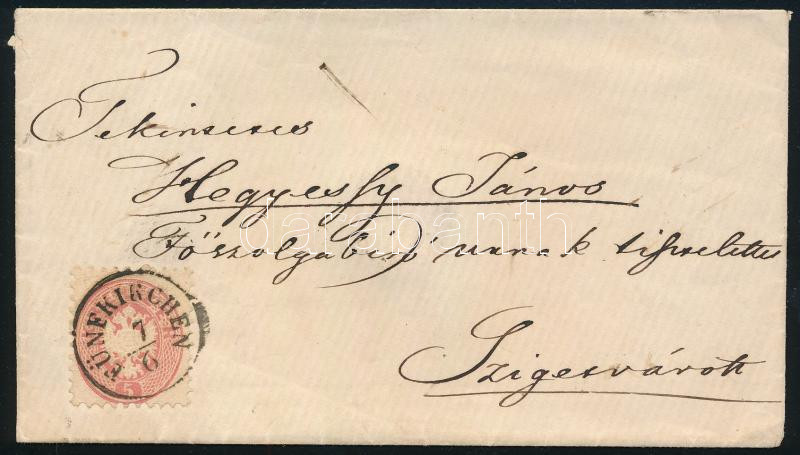 Tekinsetes
Hegyessy János
Főszolgabiró urnak tisztelettel
Szigetvárott
FÜNFKIRCHEN
7/6
5
darabanth